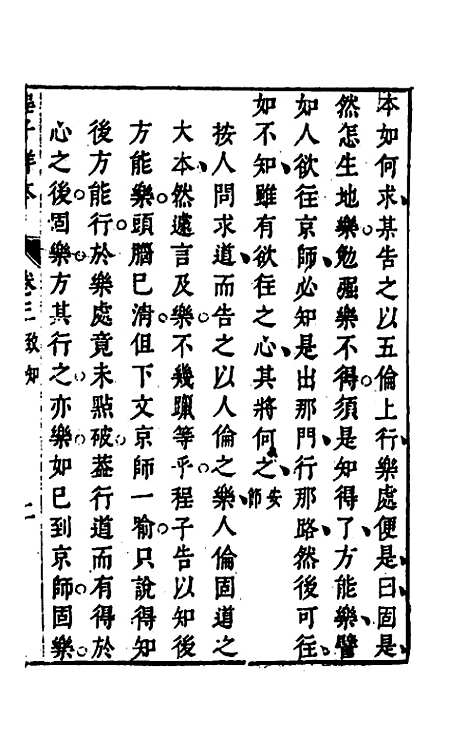 本如何求某告之以五倫上行樂處便是曰固是
然怎生地樂勉强樂不得須是知得了方能樂譬
如人欲往京師必知是出那門行那路然後可往
如不知雖有欲往之心其將何之安節
按人問求道而告之以人倫之樂人倫固道之
大本然遽言及樂不幾躐等乎程子告以知後
方能樂頭腦已清但下文京師一喻只說得知
後方能行於樂處竟未點破葢行道而有得於
心之後固樂方其行之亦樂如已到京師固樂
子詳本 卷三 致知 二